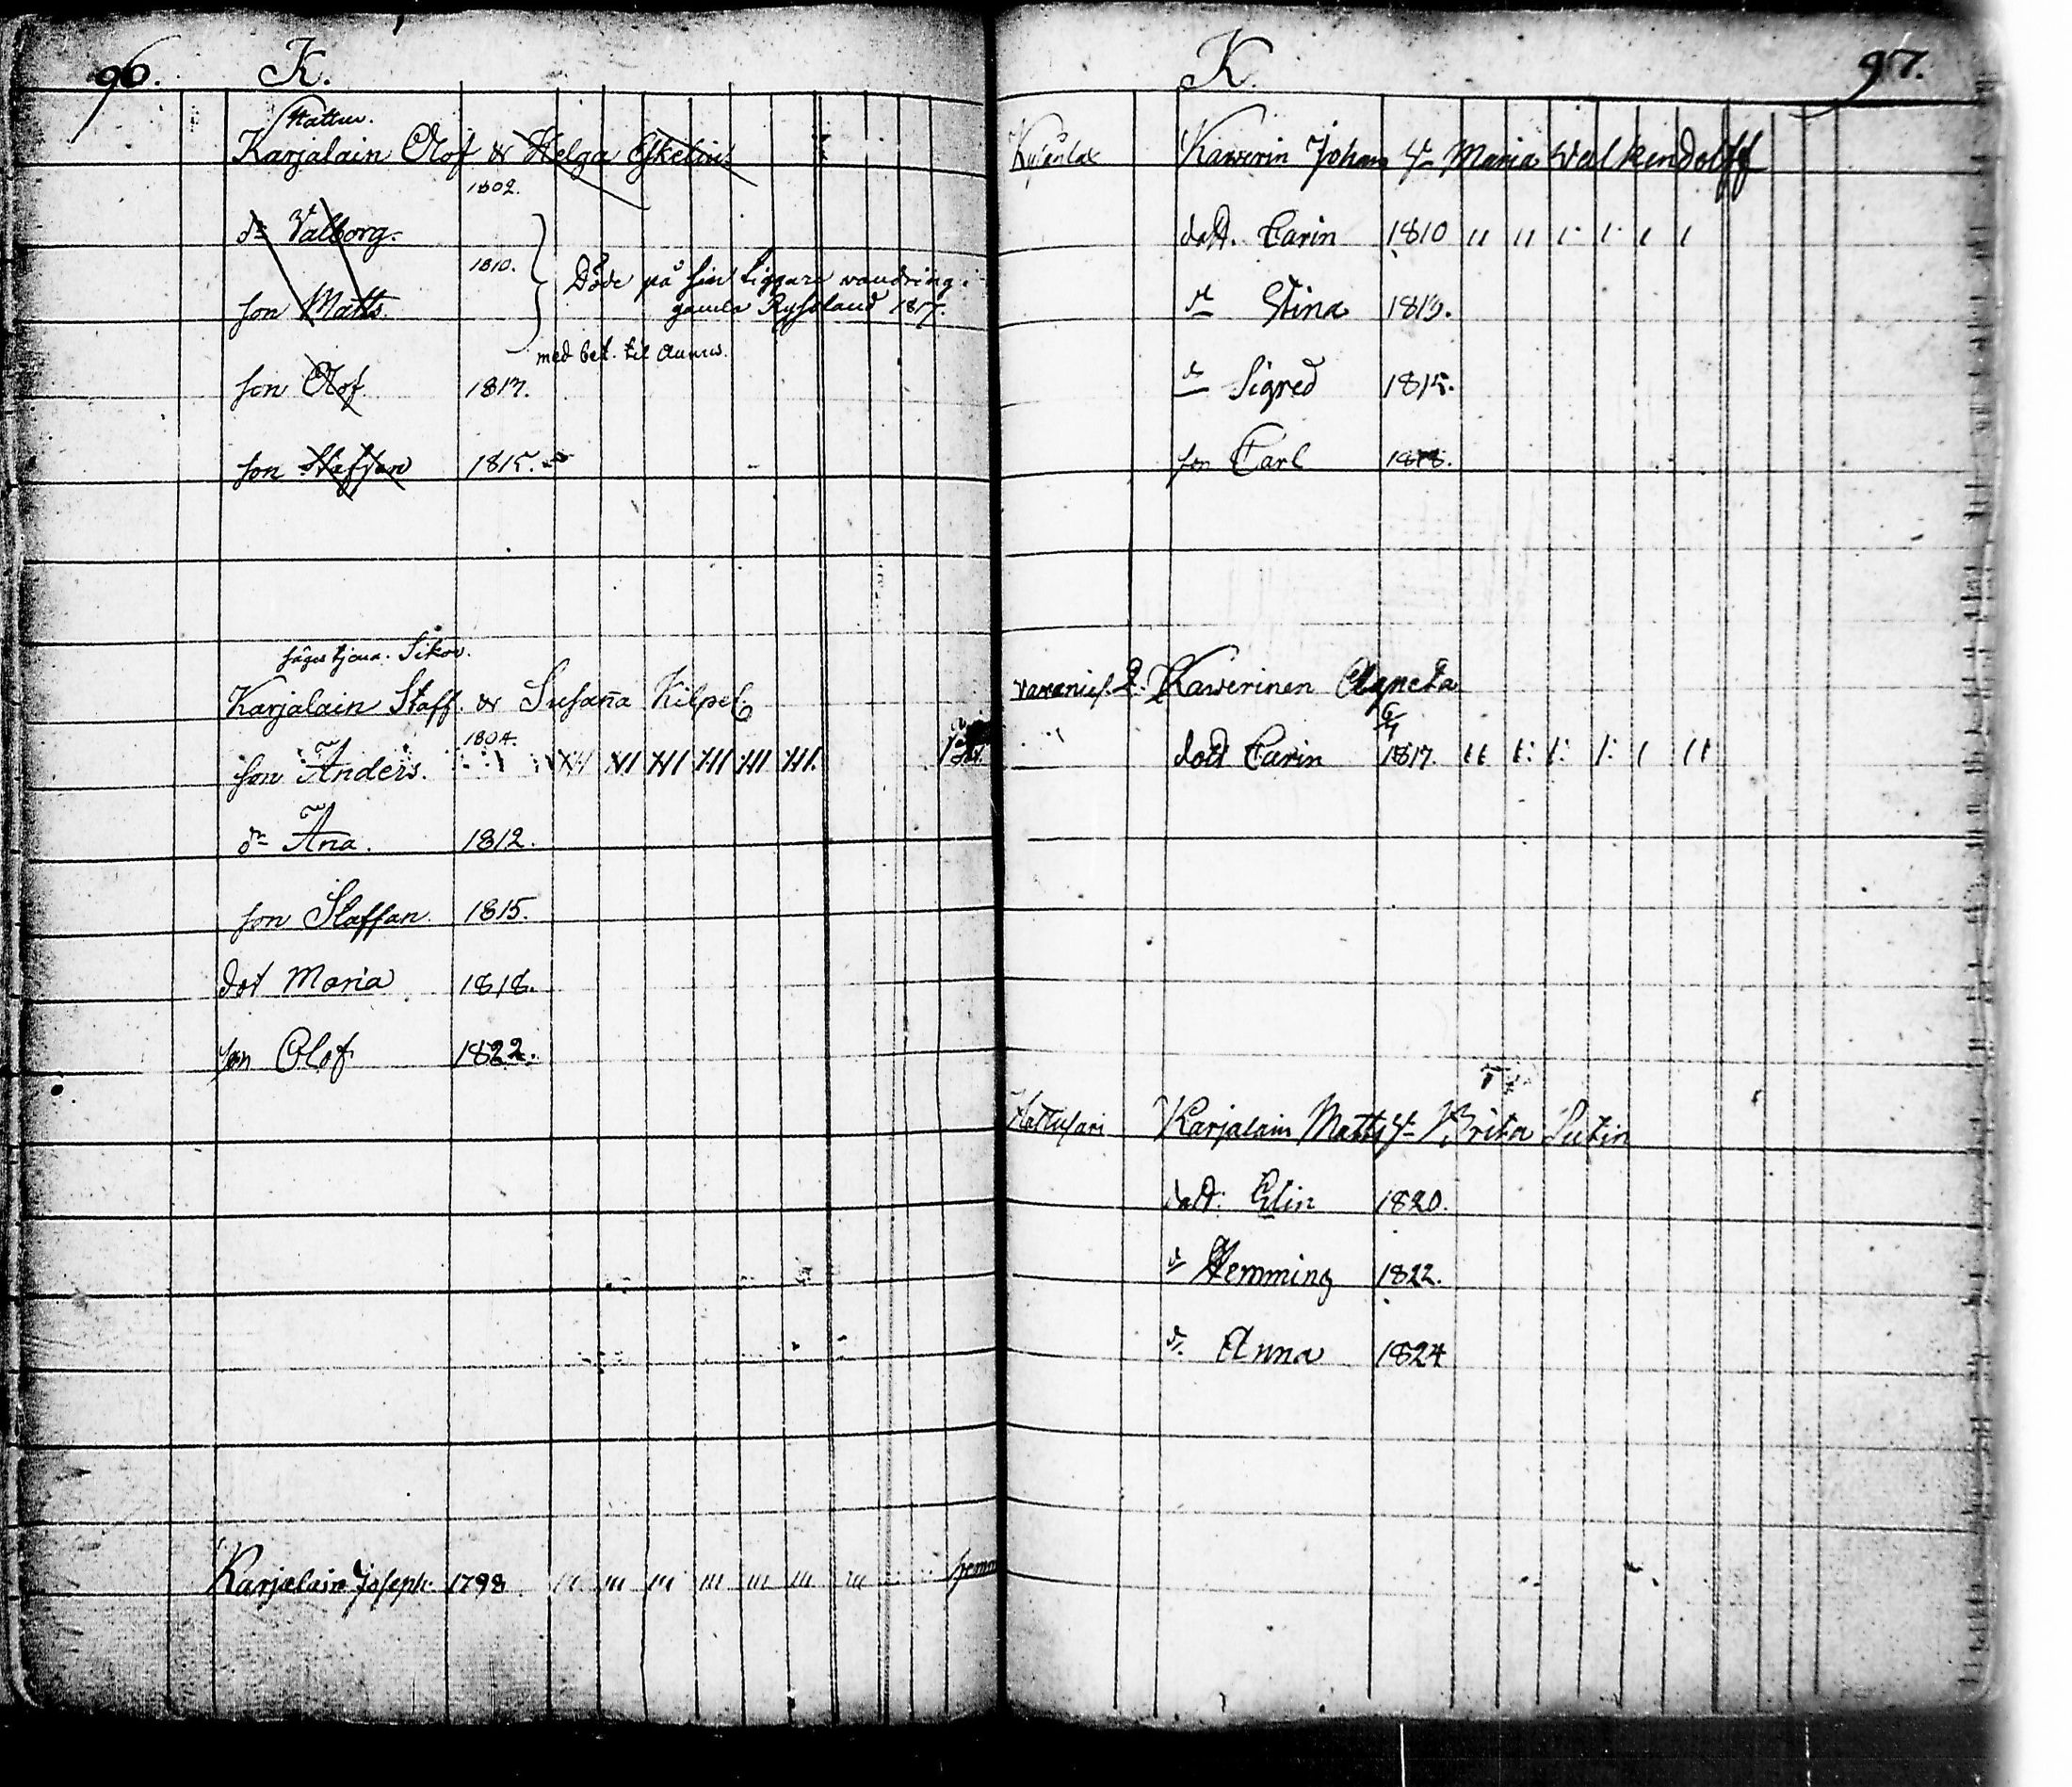 96. K.
Karjalain Olof & Helga Eskelin
1802.
dr Valborg.
1810.
Döde på sin tiggare vandring i
son Matts
gamla Ryssland 1817.
med bet. til
son Olof 1813.
son Staffan 1815.
säges tjena.
Karjalain Staff. & Susaña Kilpel.
1804.
son Anders.
dr Aña. 1812.
son Staffan 1815.
dot Maria 1818.
son Olof 1822.
Karjalain Joseph. 1798
K. 97.
Kawerin Johan & Maria
dott. Carin 1810
dr Stina 1813.
dr Sigred 1815.
son Carl
Kawerinen Agneta
dott Carin 1817.
Hattusari Karjalain Matts & Brita Sutin
dott. Elin 1820.
Hemming 1822.
d: Anna 1824